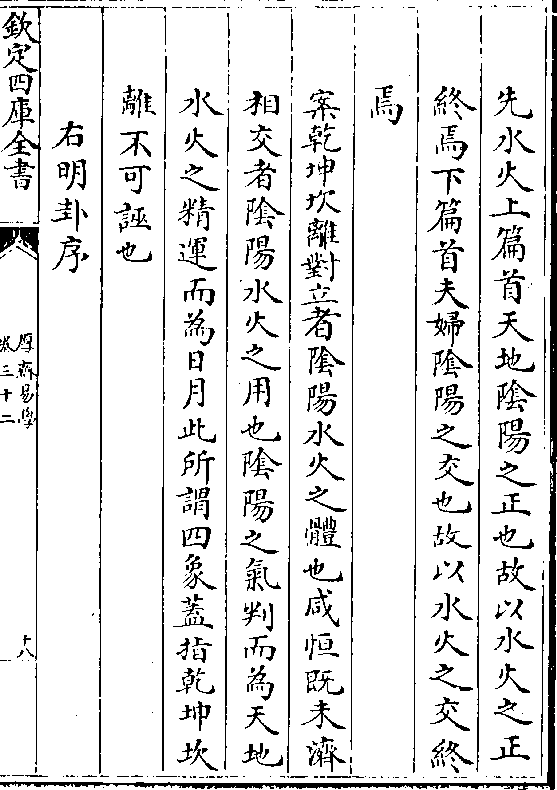 先水火上篇首天地陰陽之正也故以水火之正
終焉下篇首夫婦陰陽之交也故以水火之交終
焉
案乾坤坎離對立者陰陽水火之體也咸恒既未濟
相交者陰陽水火之用也陰陽之氣判而為天地
水火之精運而為日月此所謂四象蓋指乾坤坎
離不可誣也
右明卦序
欽定四庫全書
厚齋易學
卷三十二
十八